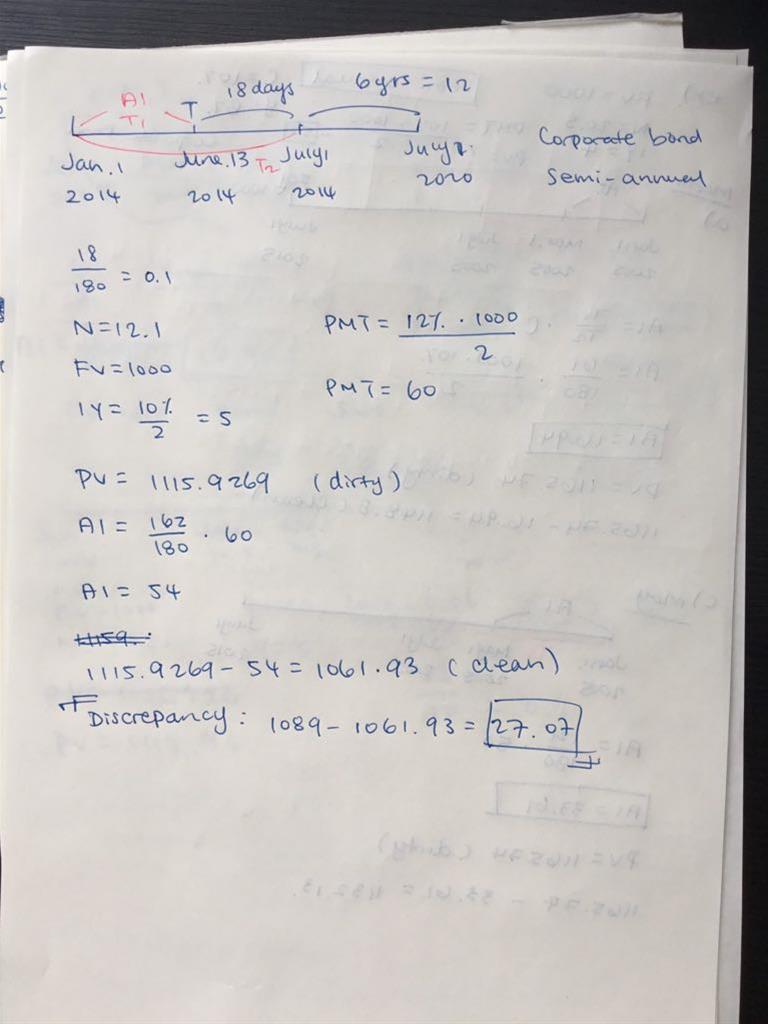 18 days 6 yrs = 12
AI T
T1
Jan. 1 June. 13 T2 July 1 July 1. Corporate bond
2014 2014 2014 2020 Semi-annual
18/180 = 0.1
N = 12.1 PMT = 12% · 1000 / 2
FV = 1000
IY = 10%/2 = 5 PMT = 60
PV = 1115.9269 (dirty)
AI = 162/180 · 60
AI = 54
1115.9269 - 54 = 1061.93 (clean)
Discrepancy: 1089 - 1061.93 = 27.07